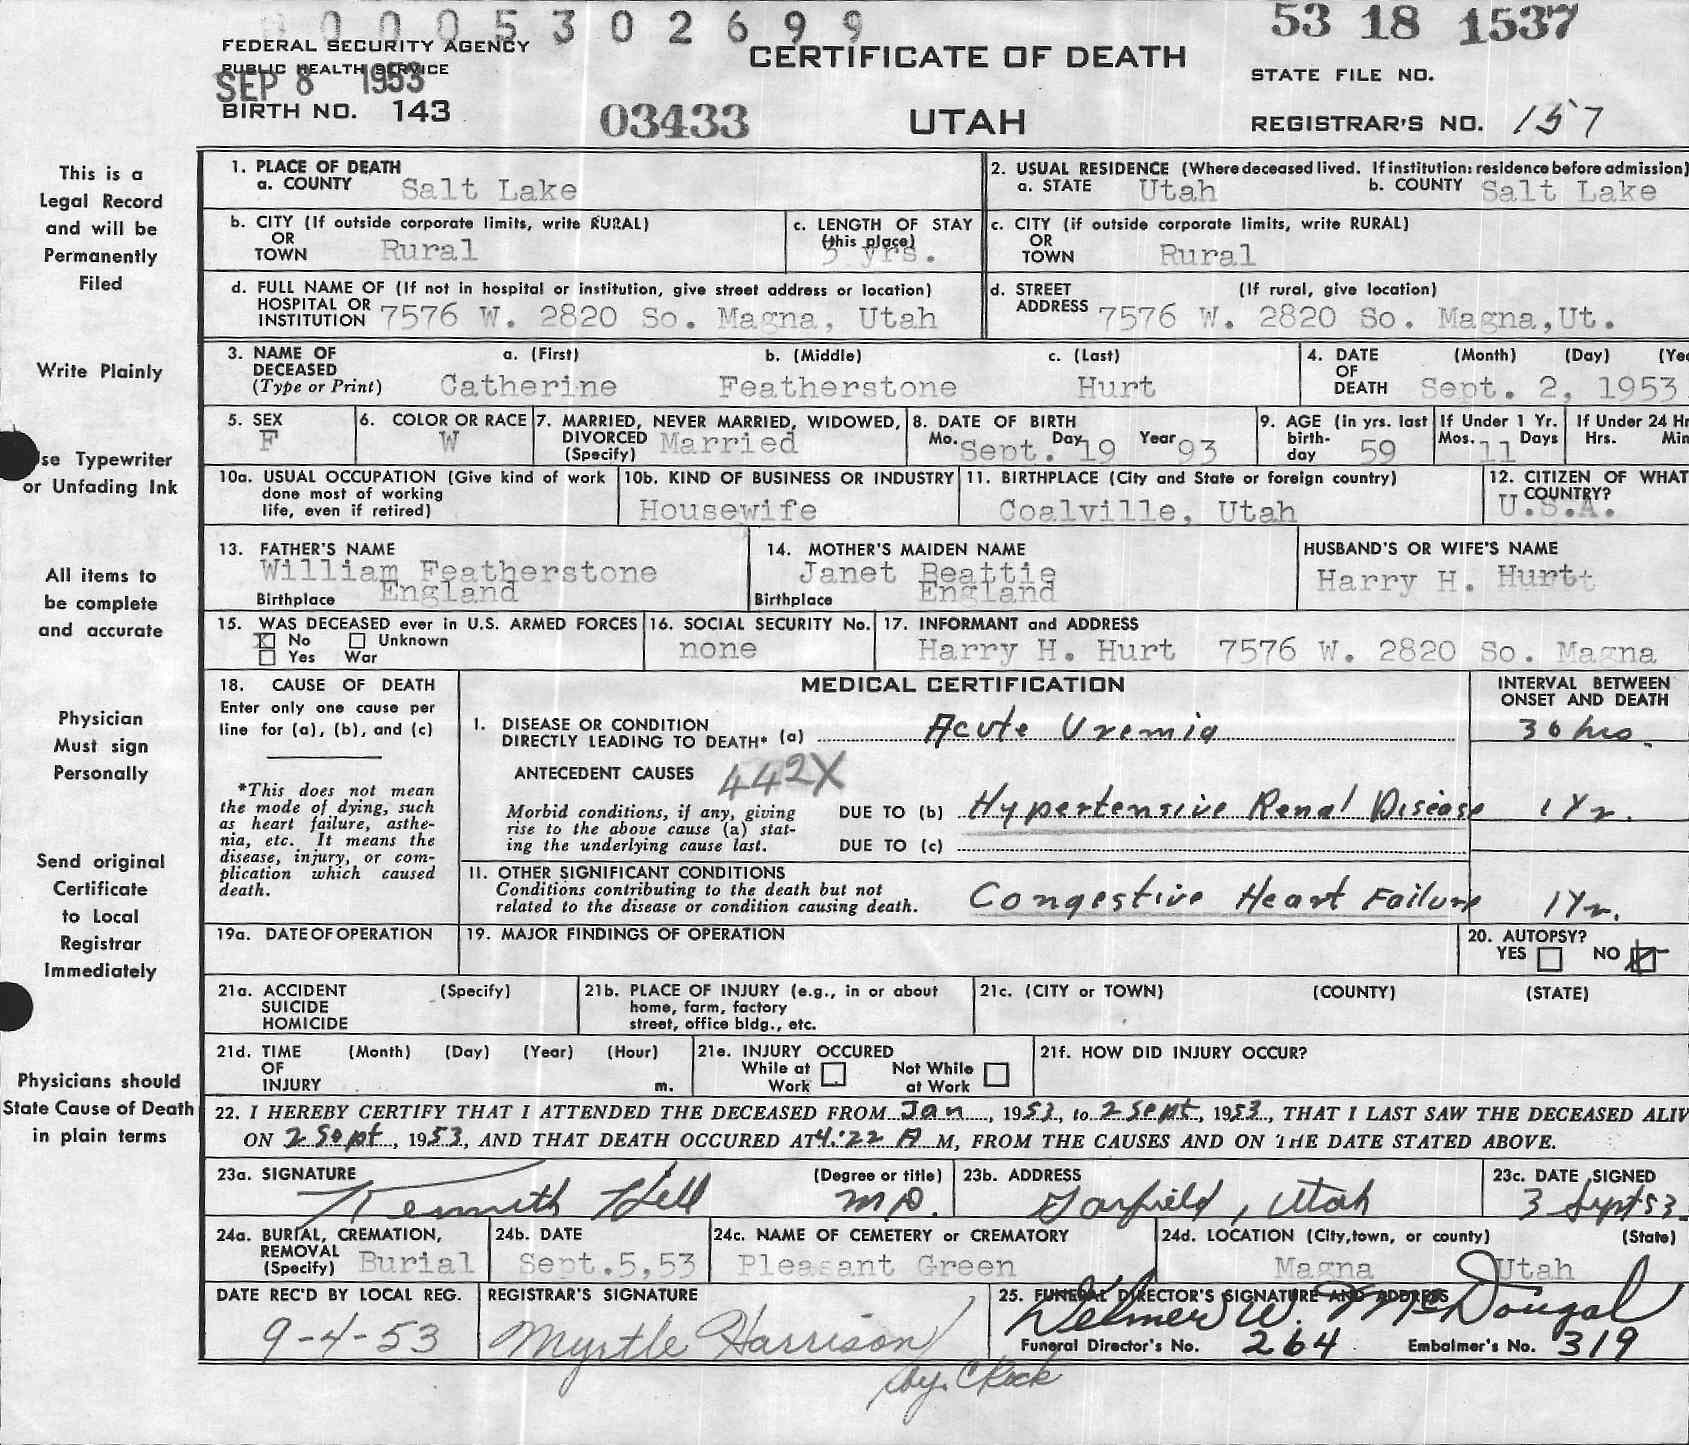 0 0 0 5 3 0 2 6 9 9
53 18 1537
FEDERAL SECURITY AGENCY
PUBLIC HEALTH SERVICE
SEP 8 1953
BIRTH NO. 143
03433
CERTIFICATE OF DEATH
UTAH
STATE FILE NO.
REGISTRAR'S NO. 157
This is a
Legal Record
and will be
Permanently
Filed
Write Plainly
se Typewriter
or Unfading Ink
All items to
be complete
and accurate
Physician
Must sign
Personally
Send original
Certificate
to Local
Registrar
Immediately
Physicians should
State Cause of Death
in plain terms
1. PLACE OF DEATH
a. COUNTY Salt Lake
2. USUAL RESIDENCE (Where deceased lived. If institution: residence before admission)
a. STATE Utah b. COUNTY Salt Lake
b. CITY (If outside corporate limits, write RURAL)
OR
TOWN Rural
c. LENGTH OF STAY
(this place)
yrs.
c. CITY (if outside corporate limits, write RURAL)
OR
TOWN Rural
d. FULL NAME OF (If not in hospital or institution, give street address or location)
HOSPITAL OR
INSTITUTION 7576 W. 2820 So. Magna, Utah
d. STREET (If rural, give location)
ADDRESS 7576 W. 2820 So. Magna,Ut.
3. NAME OF a. (First) b. (Middle) c. (Last)
DECEASED
(Type or Print) Catherine Featherstone Hurt
4. DATE (Month) (Day) (Yea
OF
DEATH Sept. 2, 1953
5. SEX
F
6. COLOR OR RACE
W
7. MARRIED, NEVER MARRIED, WIDOWED,
DIVORCED Married
(Specify)
8. DATE OF BIRTH
Mo. Sept. Day 19 Year 93
9. AGE (in yrs. last
birth-
day 59
If Under 1 Yr.
Mos. 11 Days
If Under 24 Hr
Hrs. Min
10a. USUAL OCCUPATION (Give kind of work
done most of working
life, even if retired)
10b. KIND OF BUSINESS OR INDUSTRY
Housewife
11. BIRTHPLACE (City and State or foreign country)
Coalville, Utah
12. CITIZEN OF WHAT
COUNTRY?
U.S.A.
13. FATHER'S NAME
William Featherstone
Birthplace England
14. MOTHER'S MAIDEN NAME
Janet Beattie
Birthplace England
HUSBAND'S OR WIFE'S NAME
Harry H. Hurt
15. WAS DECEASED ever in U.S. ARMED FORCES
X No Unknown
Yes War
16. SOCIAL SECURITY No.
none
17. INFORMANT and ADDRESS
Harry H. Hurt 7576 W. 2820 So. Magna
18. CAUSE OF DEATH
Enter only one cause per
line for (a), (b), and (c)
*This does not mean
the mode of dying, such
as heart failure, asthe-
nia, etc. It means the
disease, injury, or com-
plication which caused
death.
MEDICAL CERTIFICATION
INTERVAL BETWEEN
ONSET AND DEATH
I. DISEASE OR CONDITION
DIRECTLY LEADING TO DEATH* (a) Acute Uremia 36 hrs.
ANTECEDENT CAUSES 442X
Morbid conditions, if any, giving
rise to the above cause (a) stat-
ing the underlying cause last.
DUE TO (b) Hypertensive Renal Disease 1 Yr.
DUE TO (c)
II. OTHER SIGNIFICANT CONDITIONS
Conditions contributing to the death but not
related to the disease or condition causing death.
Congestive Heart Failure 1 Yr.
19a. DATE OF OPERATION
19. MAJOR FINDINGS OF OPERATION
20. AUTOPSY?
YES NO X
21a. ACCIDENT (Specify)
SUICIDE
HOMICIDE
21b. PLACE OF INJURY (e.g., in or about
home, farm, factory
street, office bldg., etc.
21c. (CITY or TOWN) (COUNTY) (STATE)
21d. TIME (Month) (Day) (Year) (Hour)
OF
INJURY m.
21e. INJURY OCCURED
While at Not While
Work at Work
21f. HOW DID INJURY OCCUR?
22. I HEREBY CERTIFY THAT I ATTENDED THE DECEASED FROM Jan, 1953, to 2 Sept, 1953, THAT I LAST SAW THE DECEASED ALIV
ON 2 Sept, 1953, AND THAT DEATH OCCURED AT 4:22 A M, FROM THE CAUSES AND ON THE DATE STATED ABOVE.
23a. SIGNATURE (Degree or title)
Kenneth Hill M.D.
23b. ADDRESS
Garfield, Utah
23c. DATE SIGNED
3 Sept 53.
24a. BURIAL, CREMATION,
REMOVAL
(Specify) Burial
24b. DATE
Sept.5,53
24c. NAME OF CEMETERY or CREMATORY
Pleasant Green
24d. LOCATION (City,town, or county) (State)
Magna Utah
DATE REC'D BY LOCAL REG.
9-4-53
REGISTRAR'S SIGNATURE
Myrtle Harrison
25. FUNERAL DIRECTOR'S SIGNATURE AND ADDRESS
Delmer W. McDougal
Funeral Director's No. 264 Embalmer's No. 319